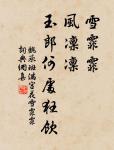 雪霏霏
風凜凜
玉郎何處狂飲
魏承班滿宮花雪霏霏
詞典網集